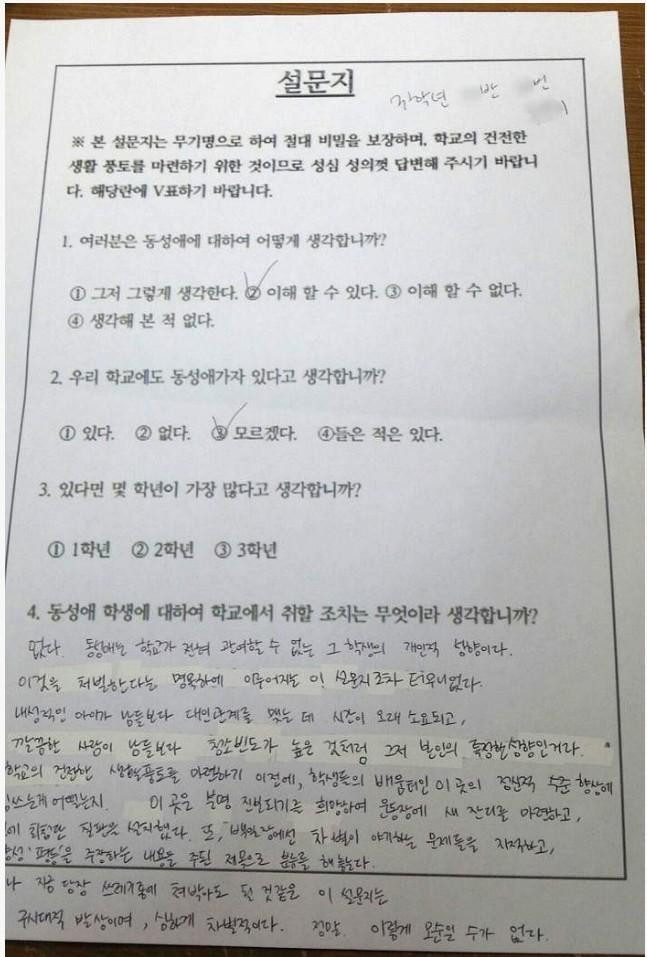 설문지
학년 반 번
※ 본 설문지는 무기명으로 하여 절대 비밀을 보장하며, 학교의 건전한
생활 풍토를 마련하기 위한 것이므로 성심 성의껏 답변해 주시기 바랍니
다. 해당란에 V표하기 바랍니다.
1. 여러분은 동성애에 대하여 어떻게 생각합니까?
① 그저 그렇게 생각한다. ② 이해 할 수 있다. ③ 이해 할 수 없다.
④ 생각해 본 적 없다.
2. 우리 학교에도 동성애가자 있다고 생각합니까?
① 있다. ② 없다. ③ 모르겠다. ④들은 적은 있다.
3. 있다면 몇 학년이 가장 많다고 생각합니까?
① 1학년 ② 2학년 ③ 3학년
4. 동성애 학생에 대하여 학교에서 취할 조치는 무엇이라 생각합니까?
없다. 동성애는 학교가 전혀 관여할 수 없는 그 학생의 개인적 성향이다.
이것을 처벌한다는 명목하에 이루어지는 이 설문지조차 터무니없다.
내성적인 아이가 남들보다 대인관계를 맺는 데 시간이 오래 소요되고,
깔끔한 사람이 남들보다 청소빈도가 높은 것처럼 그저 본인의 특정한 성향인거라.
학교의 건전한 생활풍토를 마련하기 이전에, 학생들의 배움터인 이 곳의 정신적 수준 향상에
힘쓰는게 어떻는지. 이 곳은 분명 진보되기를 희망하여 운동장에 새 잔디를 마련하고,
설치했다. 또, 백일장에선 차별이 야기하는 문제들을 지적하고,
'평등'을 주장하는 내용을 주된 제목으로 분류를 해놨다.
지금 당장 쓰레기통에 쳐박아도 될 것같은 이 설문지는
구시대적 발상이며, 심하게 차별적이다. 정말 이렇게 모순일 수가 없다.